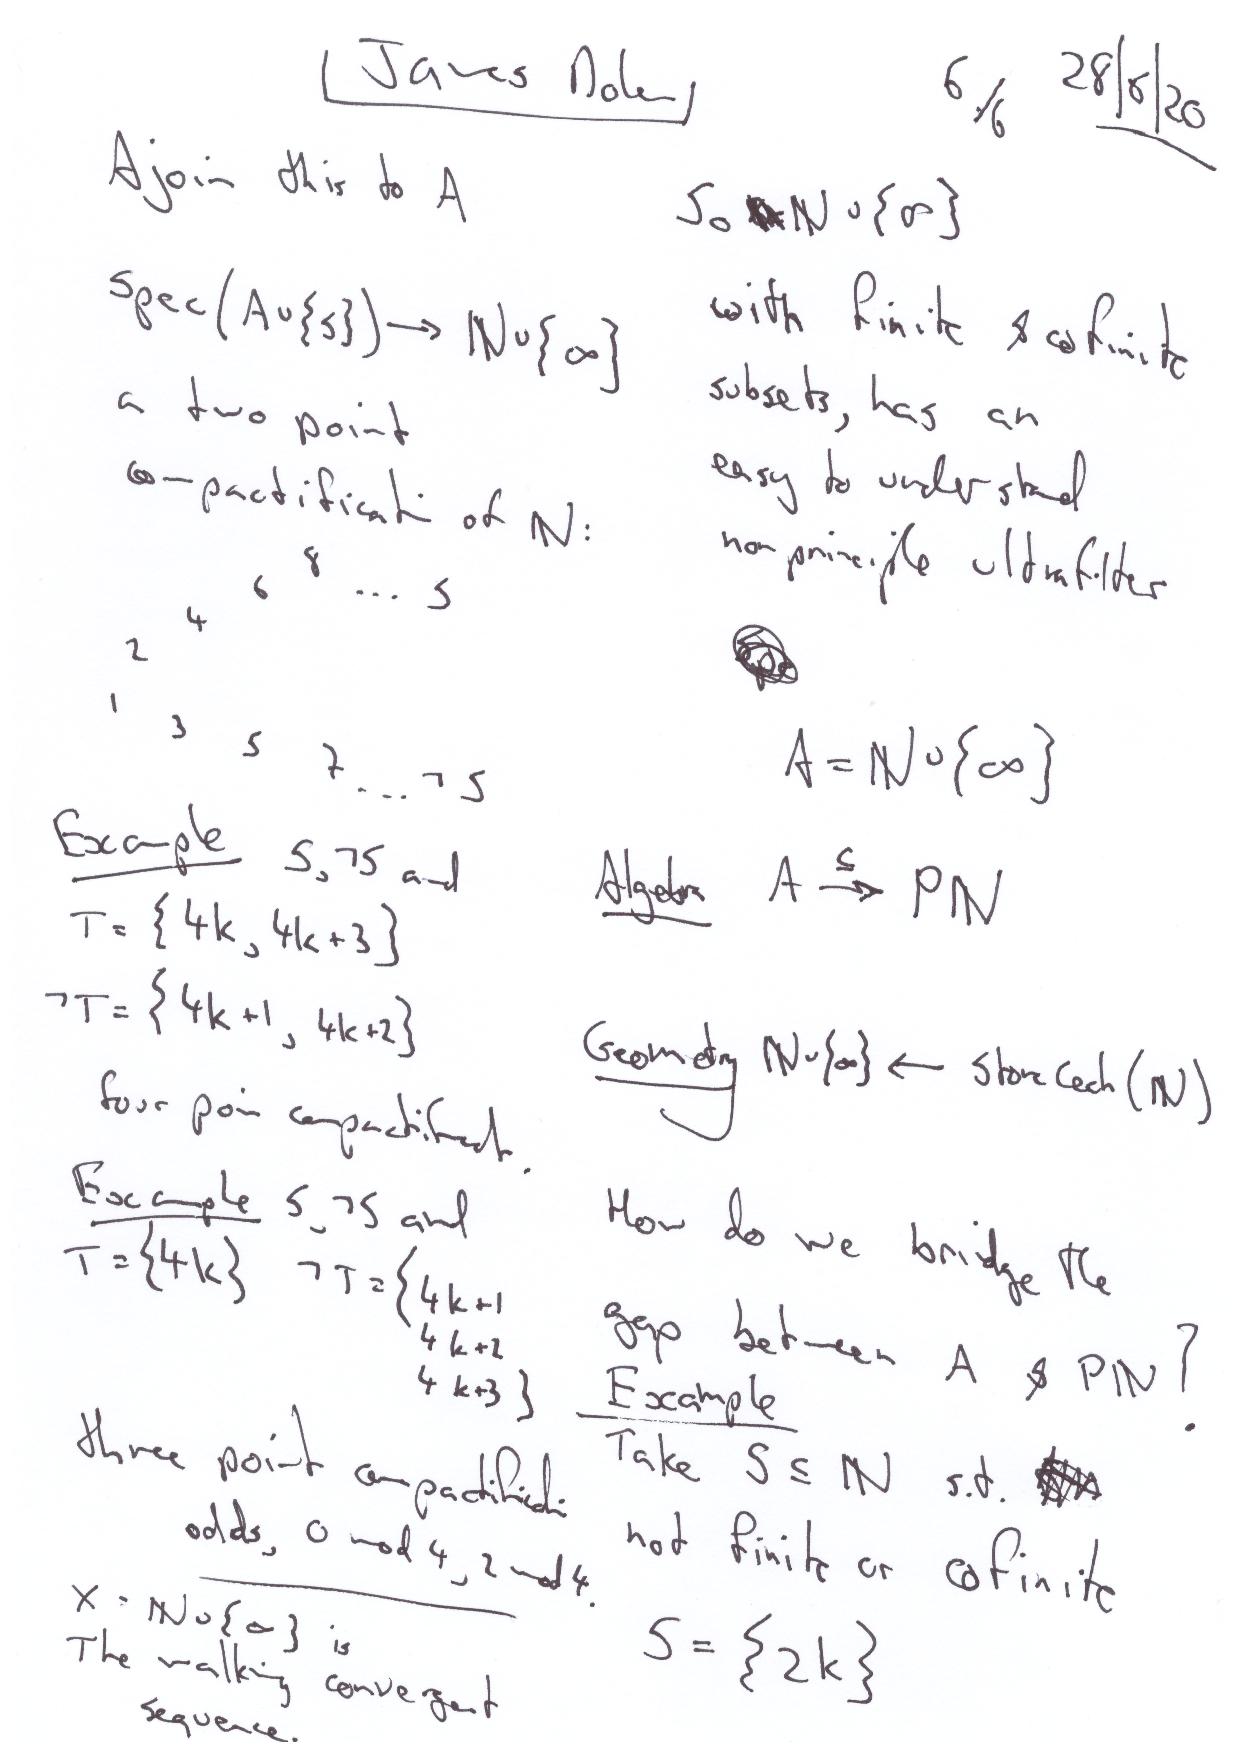 James Dolan
6/6 28/6/20
Ajoin this to A
Spec(A∪{s}) → ℕ∪{∞}
a two point
compactificati of ℕ:
2 4 6 8 ... S
1 3 5 7 ... ¬S
Example S, ¬S and
T = {4k, 4k+3}
¬T = {4k+1, 4k+2}
four poin compactificat.
Example S, ¬S and
T = {4k} ¬T = {4k+1
4k+2
4k+3}
three point compactificati:
odds, 0 mod 4, 2 mod 4.
X = ℕ∪{∞} is
The walking convergent
sequence.
So ℕ∪{∞}
with finite & cofinite
subsets, has an
easy to understand
nonprinciple ultrafilter
A = ℕ∪{∞}
Algebra A ↪ Pℕ
Geometry ℕ∪{∞} ← Stone Cech(ℕ)
How do we bridge the
gap between A & Pℕ?
Example
Take S ⊆ ℕ s.t.
not finite or cofinite
S = {2k}